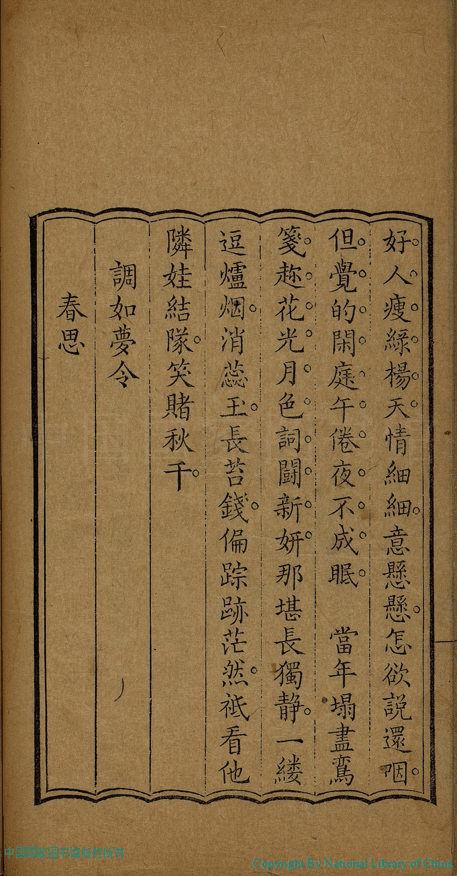 好人瘦綠楊天情細細意懸懸怎欲說還咽
但覺的閑庭午倦夜不成眠　當年塌盡鸞
箋趂花光月色詞鬪新妍那堪長獨靜一縷
逗爐烟消蕊玉長苔錢偏踪跡茫然祗看他
隣娃結隊笑賭秋千
調如夢令
春思
Copyright By National Library of China